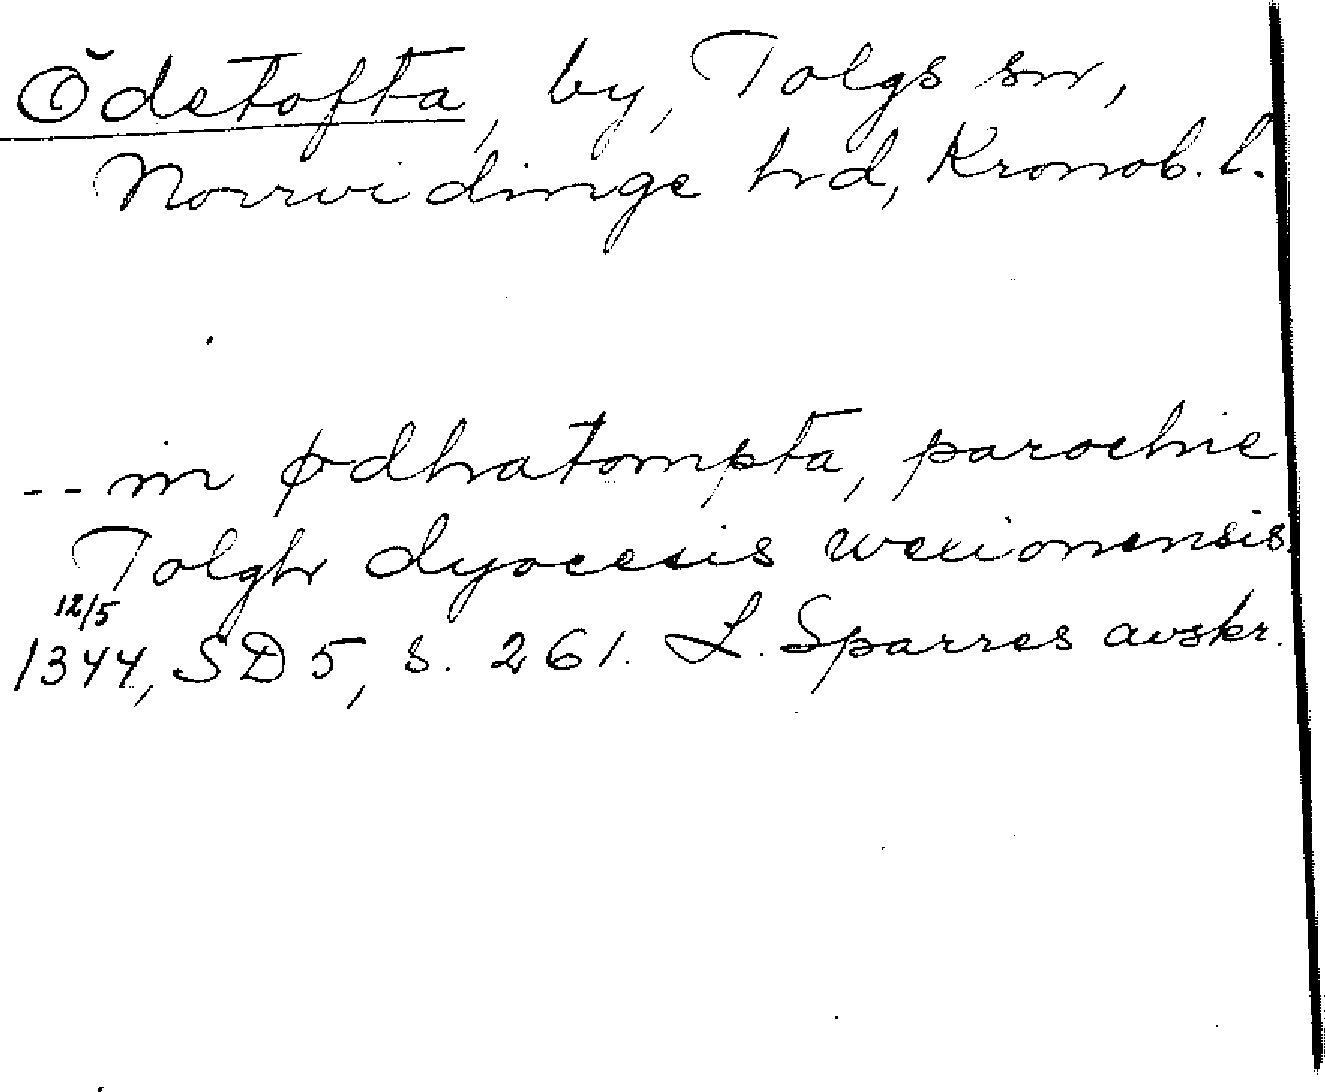 Ödetofta, by, Tolgs sn,
Norrvidinge hrd, Kronob. l.
-- in ødhatompta, parochie
Tolgh dyocesis wexionensis
12/5
1344, SD 5, s. 261. L. Sparres avskr.